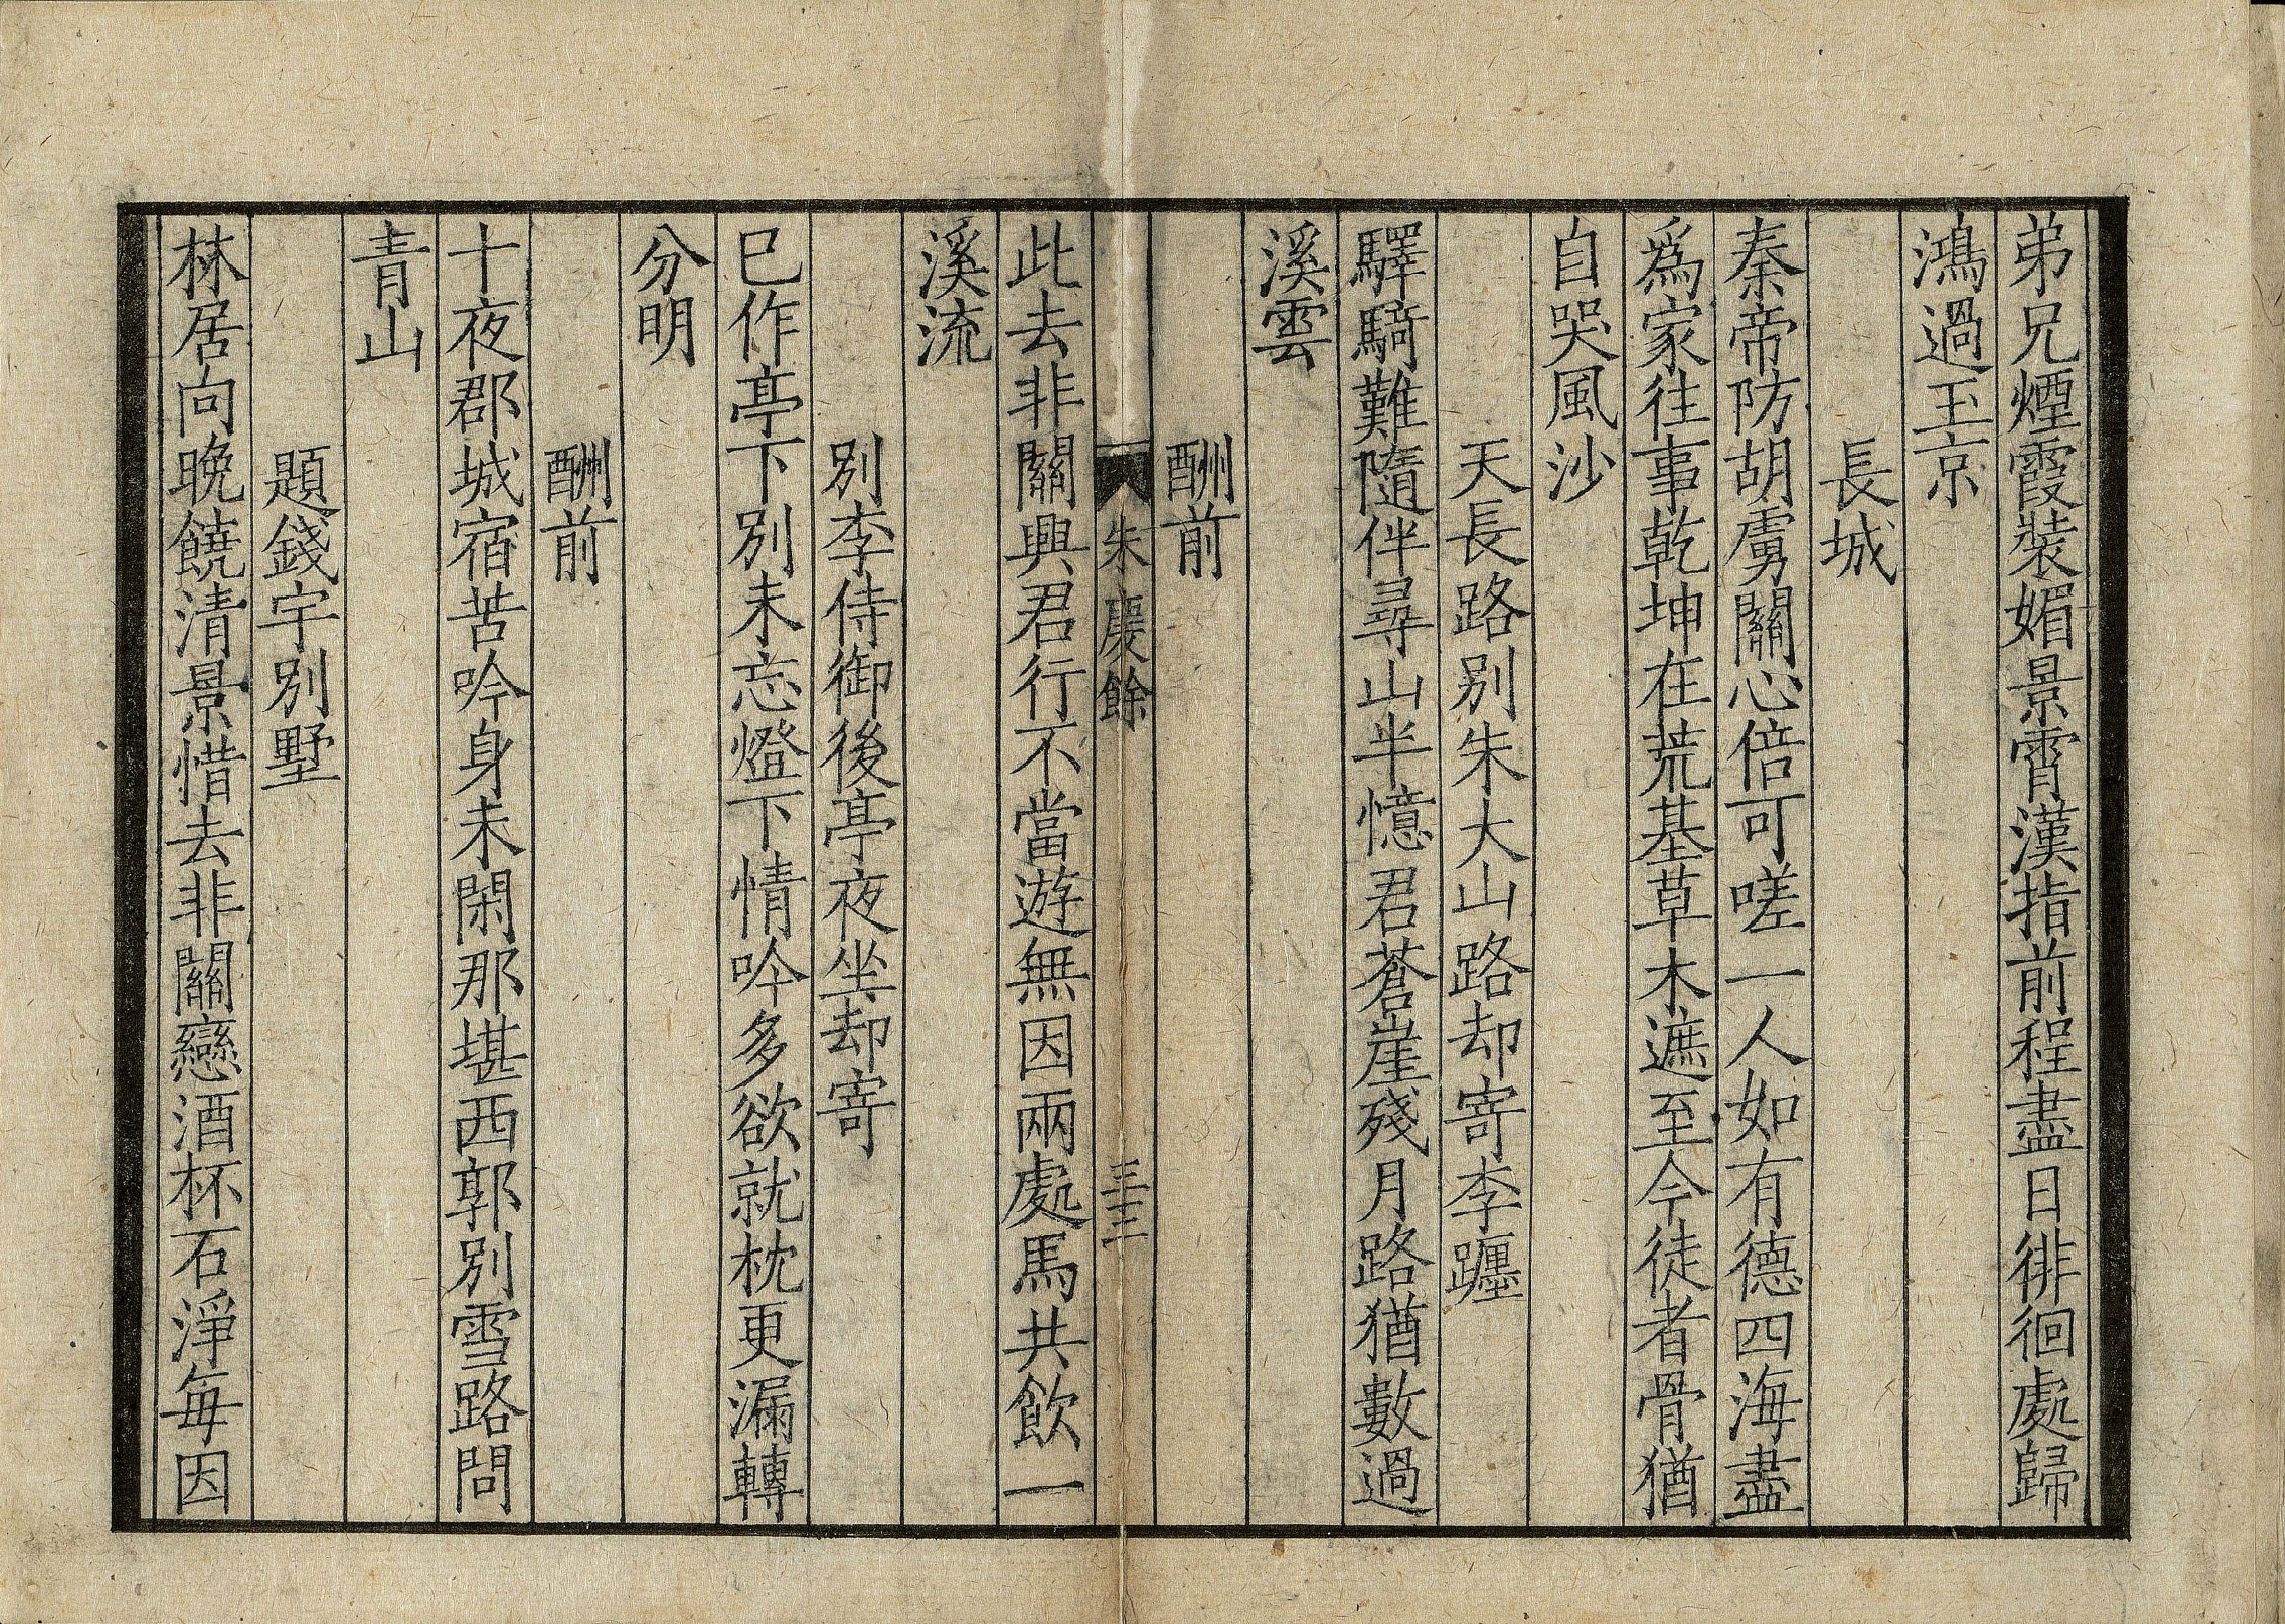 弟兄煙霞裝媚景霄漢指前程盡日徘徊處歸
鴻過玉京
長城
秦帝防胡虜關心倍可嗟一人如有德四海盡
爲家往事乾坤在荒基草木遮至今徒者骨猶
自哭風沙
天長路別朱大山路却寄李躔
驛騎難隨伴尋山半憶君蒼崖殘月路猶數過
溪雲
酬前
朱慶餘 三三
此去非關興君行不當遊無因兩處馬共飲一
溪流
別李侍御後亭夜坐却寄
已作亭下別未忘燈下情吟多欲就枕更漏轉
分明
酬前
十夜郡城宿苦吟身未閑那堪西郭別雪路問
青山
題錢宇別墅
林居向晚饒清景惜去非關戀酒杯石淨每因